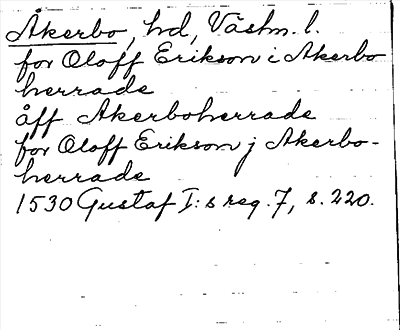 Åkerbo, hd, Västm. l.
for Oloff Erikson i Akerbo
herrade
åff Akerboherrade
for Oloff Erikson j Akerbo-
herrade
1530 Gustaf I:s reg. 7, s. 220.